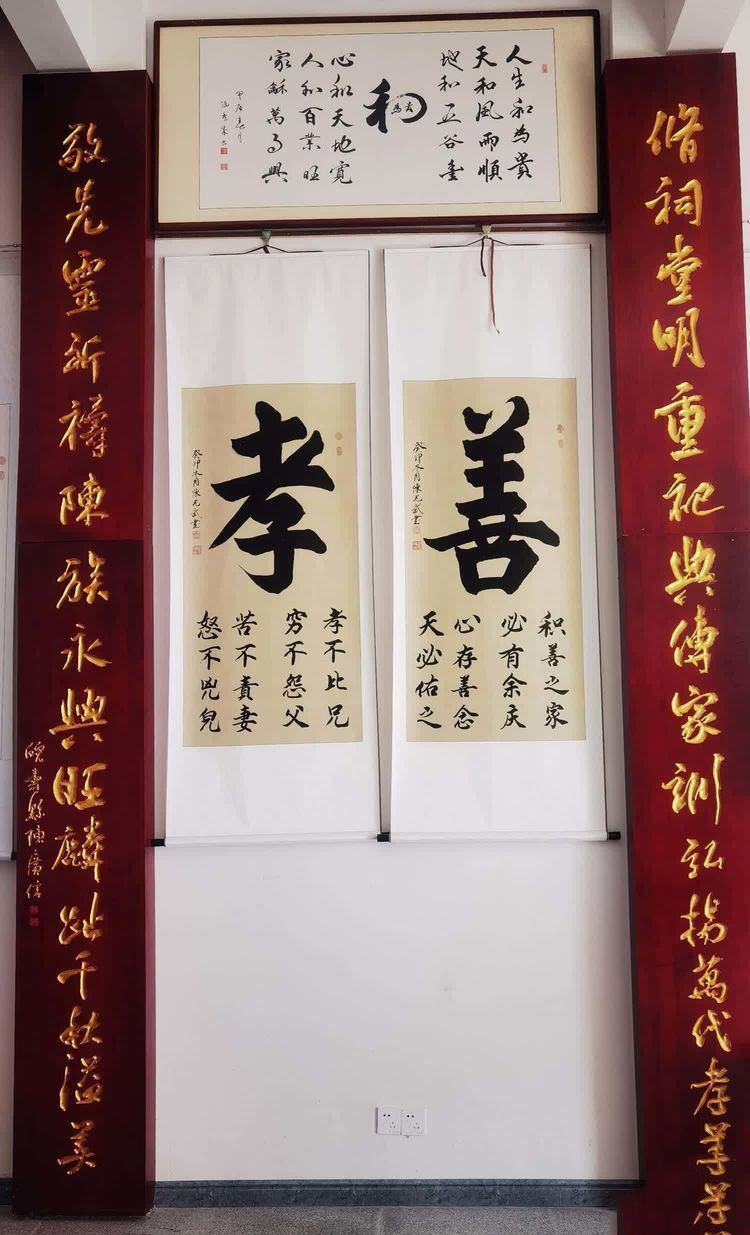 人生和為貴
天和風雨順
地和五谷豐
和
心和天地寬
人和百業旺
家龢萬事興
甲辰春月
脩祠堂明重祀典傳家訓弘揚萬代孝
善
积善之家
必有余庆
心存善念
天必佑之
癸卯冬月陳光武書
孝
孝不比兄
穷不怨父
苦不責妻
怒不兇兒
癸卯冬月陳光武書
敬先靈祈禱陳族永興旺麟趾千秋溢美
皖壽縣陳廣信